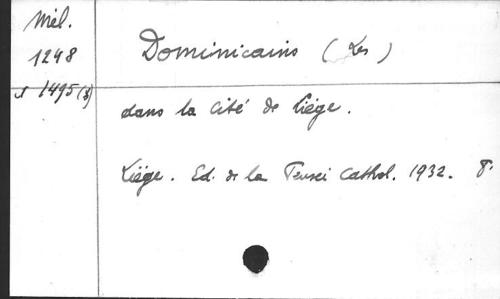 Mél.
1248
1495 (3)
Dominicains (Les)
dans la Cité de Liége.
Liége. Ed. de la Pensée Cathol. 1932. 8.